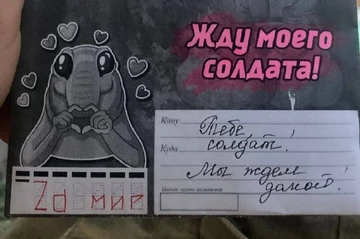 Жду моего
солдата!
Кому Тебе,
Куда солдат!
Мы ждем
домой!
Za мир